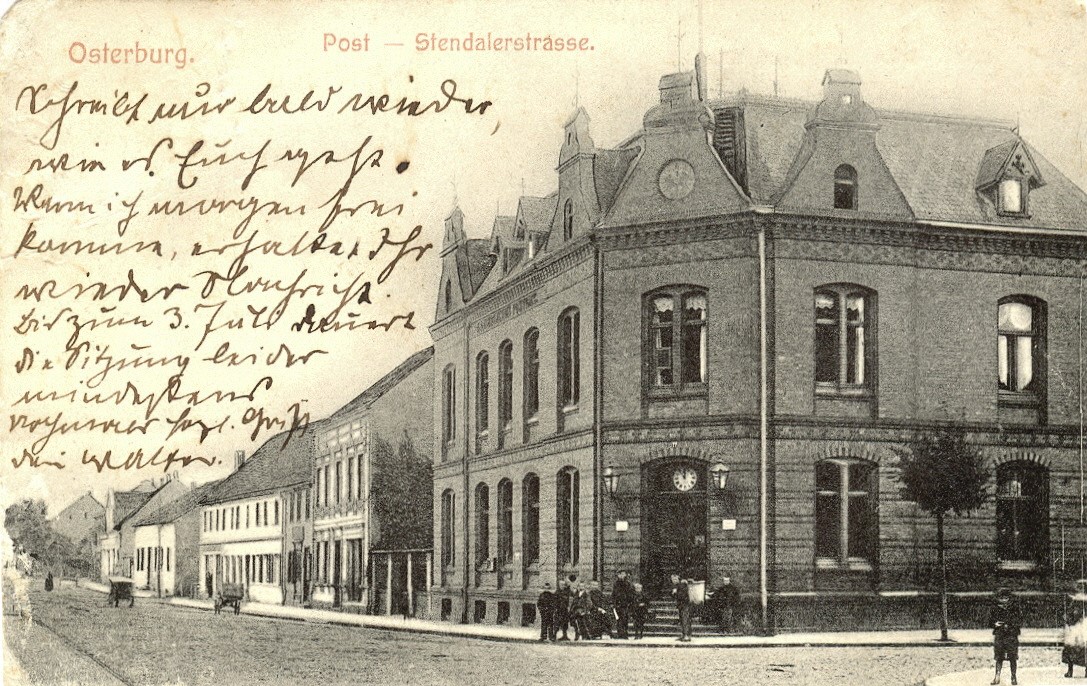 Osterburg.
Post — Stendalerstrasse.
Schreibt nur bald wieder,
wie es Euch geht.
Wenn ich morgen frei
komme, erhaltet Ihr
wieder Nachricht.
Bis zum 3. Juli dauert
die Sitzung leider
mindestens
nochmals herzl. Gruß
dein Walter.